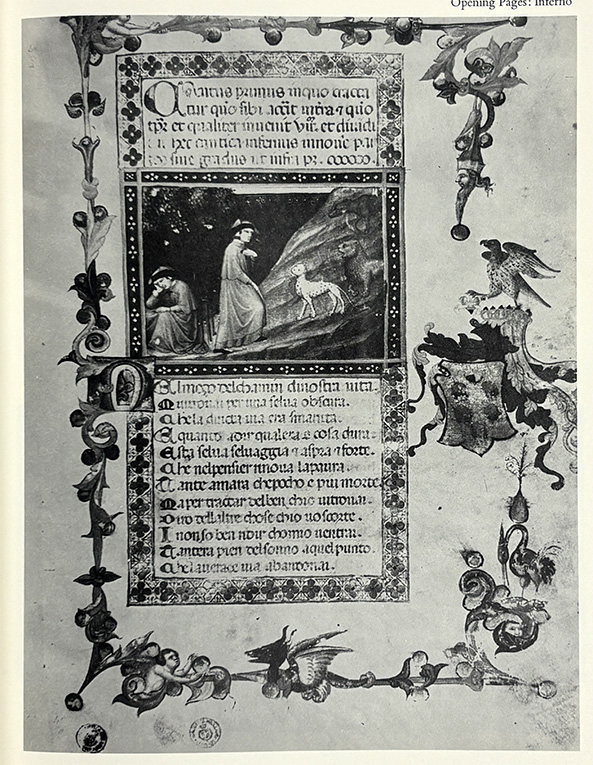 Opening Pages: Inferno
primus inquo tracta
tur quo sibi infra & quo
et qualiter invenit et dividi
hec cantica infernus innove
sive gradus ut infra
El mezo delchamin dinostra vita.
Mi ritrovai per una selva obscura.
Chela diricta via era smarita.
E quanto adir qualera e cosa dura.
Esta selva selvaggia & aspra & forte.
Che nelpensier rinova lapaura.
Tante amara chepocho e piu morte.
Ma per tractar delben chio vitrovai.
Diro dellaltre chose chio vo scorte.
I nonso ben ridir chomio ventrai.
Tantera pien delsonno aquel punto.
Chelaverace via abandonai.